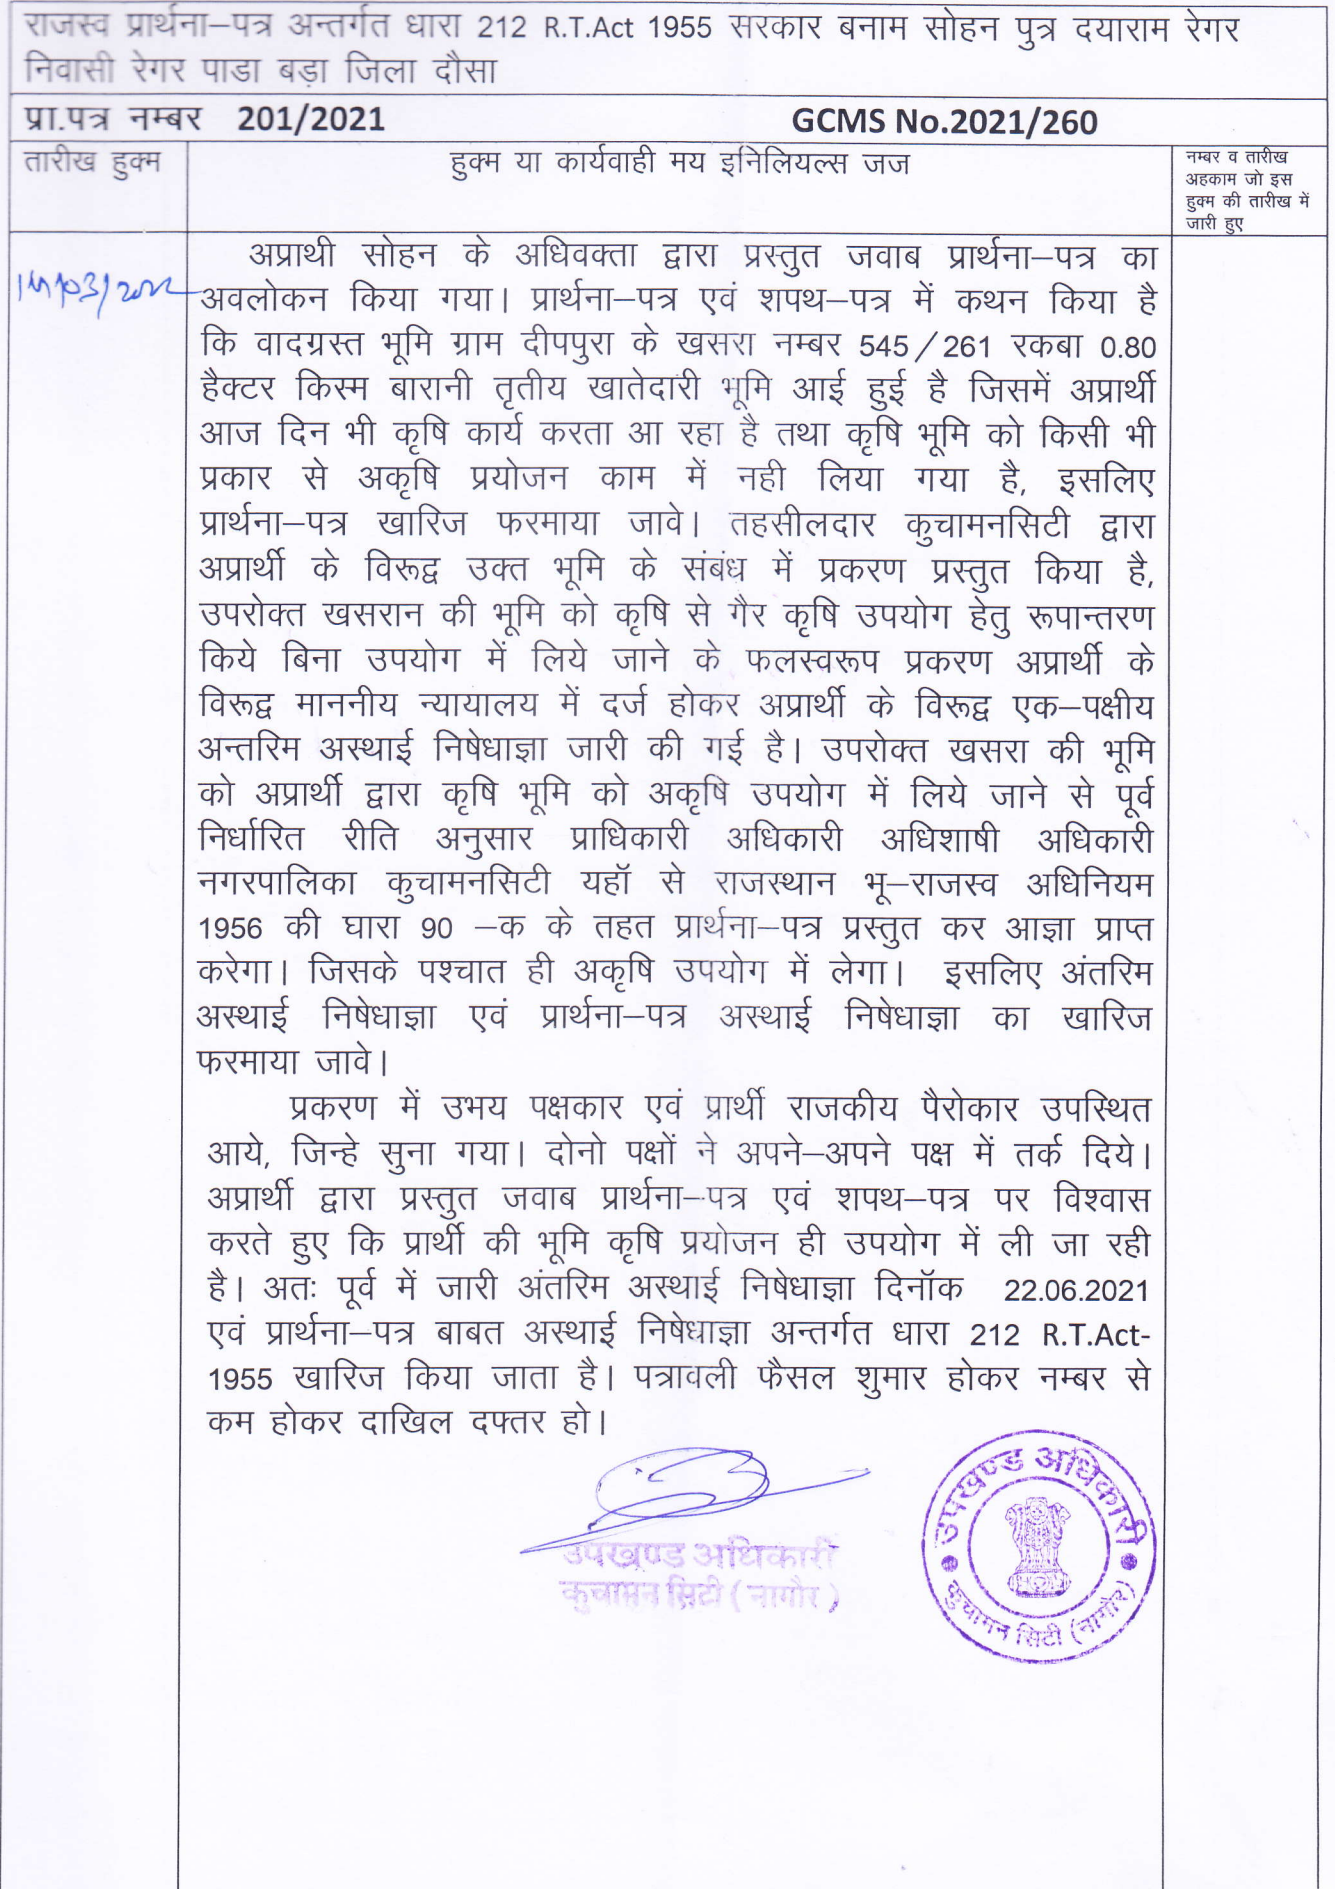 राजस्व प्रार्थना–पत्र अन्तर्गत धारा 212 R.T.Act 1955 सरकार बनाम सोहन पुत्र दयाराम रेगर
निवासी रेगर पाडा बड़ा जिला दौसा
प्रा.पत्र नम्बर 201/2021 GCMS No.2021/260
तारीख हुक्म
हुक्म या कार्यवाही मय इनिलियल्स जज
नम्बर व तारीख
अहकाम जो इस
हुक्म की तारीख में
जारी हुए
अप्राथी सोहन के अधिवक्ता द्वारा प्रस्तुत जवाब प्रार्थना–पत्र का
अवलोकन किया गया। प्रार्थना–पत्र एवं शपथ–पत्र में कथन किया है
कि वादग्रस्त भूमि ग्राम दीपपुरा के खसरा नम्बर 545/261 रकबा 0.80
हैक्टर किस्म बारानी तृतीय खातेदारी भूमि आई हुई है जिसमें अप्रार्थी
आज दिन भी कृषि कार्य करता आ रहा है तथा कृषि भूमि को किसी भी
प्रकार से अकृषि प्रयोजन काम में नही लिया गया है, इसलिए
प्रार्थना–पत्र खारिज फरमाया जावे। तहसीलदार कुचामनसिटी द्वारा
अप्रार्थी के विरूद्व उक्त भूमि के संबंध में प्रकरण प्रस्तुत किया है,
उपरोक्त खसरान की भूमि को कृषि से गैर कृषि उपयोग हेतु रूपान्तरण
किये बिना उपयोग में लिये जाने के फलस्वरूप प्रकरण अप्रार्थी के
विरूद्व माननीय न्यायालय में दर्ज होकर अप्रार्थी के विरूद्व एक–पक्षीय
अन्तरिम अस्थाई निषेधाज्ञा जारी की गई है। उपरोक्त खसरा की भूमि
को अप्रार्थी द्वारा कृषि भूमि को अकृषि उपयोग में लिये जाने से पूर्व
निर्धारित रीति अनुसार प्राधिकारी अधिकारी अधिशाषी अधिकारी
नगरपालिका कुचामनसिटी यहॉ से राजस्थान भू–राजस्व अधिनियम
1956 की घारा 90 –क के तहत प्रार्थना–पत्र प्रस्तुत कर आज्ञा प्राप्त
करेगा। जिसके पश्चात ही अकृषि उपयोग में लेगा। इसलिए अंतरिम
अस्थाई निषेधाज्ञा एवं प्रार्थना–पत्र अस्थाई निषेधाज्ञा का खारिज
फरमाया जावे।
प्रकरण में उभय पक्षकार एवं प्रार्थी राजकीय पैरोकार उपस्थित
आये, जिन्हे सुना गया। दोनो पक्षों ने अपने–अपने पक्ष में तर्क दिये।
अप्रार्थी द्वारा प्रस्तुत जवाब प्रार्थना–पत्र एवं शपथ–पत्र पर विश्वास
करते हुए कि प्रार्थी की भूमि कृषि प्रयोजन ही उपयोग में ली जा रही
है। अतः पूर्व में जारी अंतरिम अस्थाई निषेधाज्ञा दिनॉक 22.06.2021
एवं प्रार्थना–पत्र बाबत अस्थाई निषेधाज्ञा अन्तर्गत धारा 212 R.T.Act-
1955 खारिज किया जाता है। पत्रावली फैसल शुमार होकर नम्बर से
कम होकर दाखिल दफ्तर हो।
उपखण्ड अधिकारी
कुचामन सिटी ( नागौर )
उपखण्ड अधिकारी
कुचामन सिटी (नागौर)